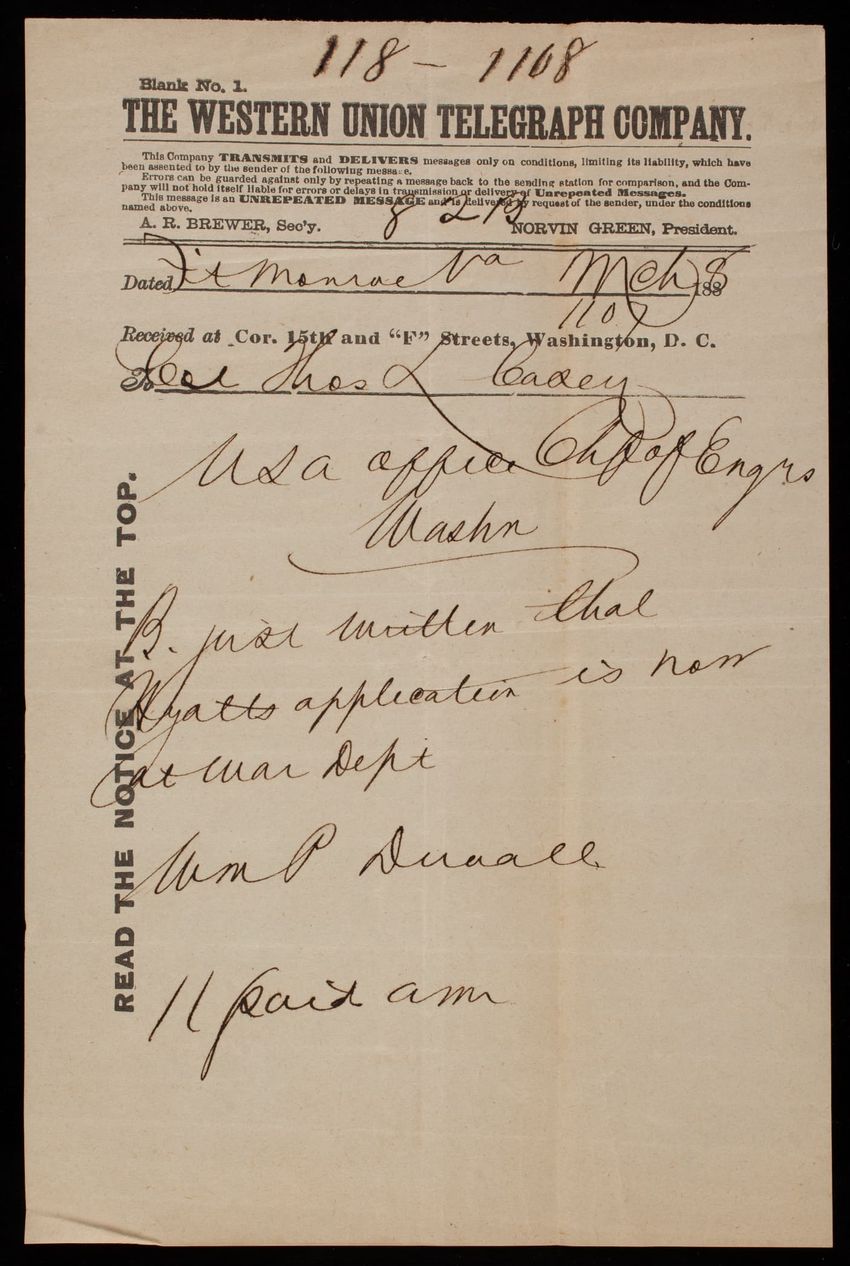 118 - 1108
Blank No. 1.
THE WESTERN UNION TELEGRAPH COMPANY.
This Company TRANSMITS and DELIVERS messages only on conditions, limiting its liability, which have
been assented to by the sender of the following message.
Errors can be guarded against only by repeating a message back to the sending station for comparison, and the Com-
pany will not hold itself liable for errors or delays in transmission or delivery of Unrepeated Messages.
This message is an UNREPEATED MESSAGE and is delivered by request of the sender, under the conditions
named above.
8
A. R. BREWER, Sec'y. NORVIN GREEN, President.
Dated Ft Monroe Va Mch 8 188
Received at Cor. 15th and "F" Streets, Washington, D. C.
To Col Thos L Casey
USA office Chf of Engrs
Washn
B. just written that
Hyatts application is now
at War Dept
Wm P Duvall
11 paid am
READ THE NOTICE AT THE TOP.